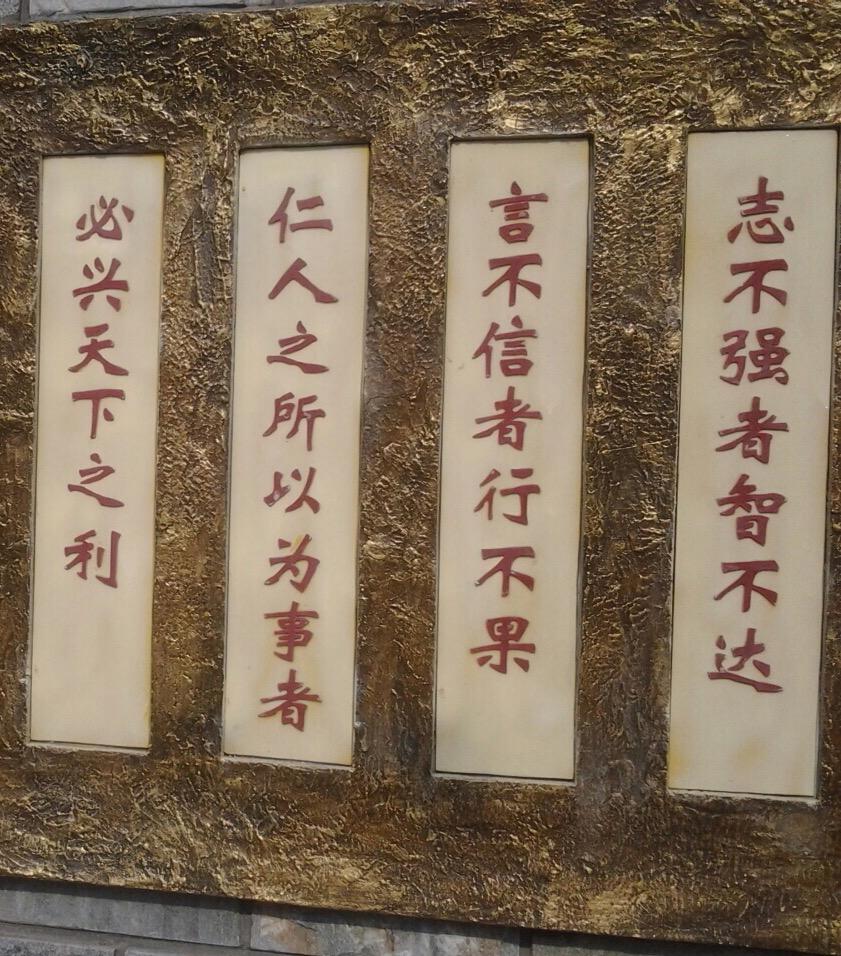 志不强者智不达
言不信者行不果
仁人之所以为事者
必兴天下之利